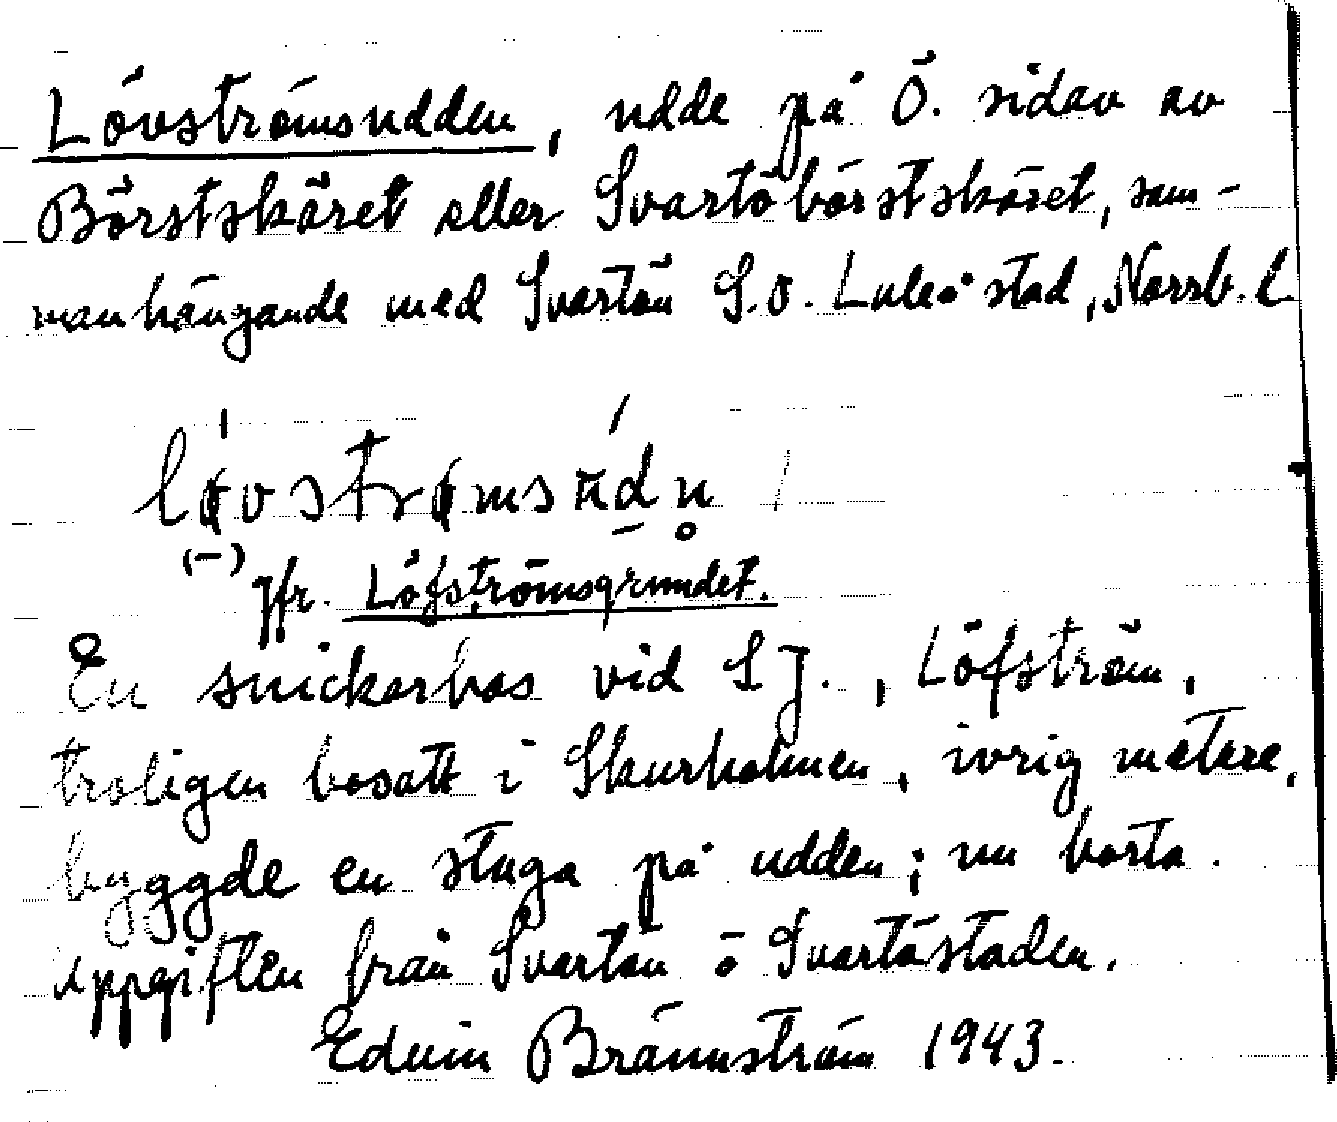 Lövströmsudden, udde på Ö. sidan av
Börstskäret eller Svartöbörstskäret, sam-
manhängande med Svartön S.Ö. Luleå stad, Norrb. l.
løvstrømsudn
(-)
Jfr. Löfströmsgrundet.
En snickarbas vid SJ., Löfström,
troligen bosatt i Skurholmen, ivrig metare,
byggde en stuga på udden; nu borta.
uppgiften från Svartön o Svartöstaden.
Edvin Brännström 1943.